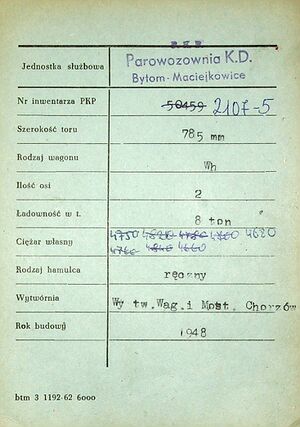 PKP
Jednostka służbowa Parowozownia K.D.
Bytom-Maciejkowice
Nr inwentarza PKP 50459 2107-5
Szerokość toru 785 mm
Rodzaj wagonu Wh
Ilość osi 2
Ładowność w t. 8 ton
Ciężar własny 4750 4820 4780 4620
4760 4840 4660
Rodzaj hamulca ręczny
Wytwórnia Wy tw.Wag.i Most. Chorzów
Rok budowy 1948
btm 3 1192-62 6000